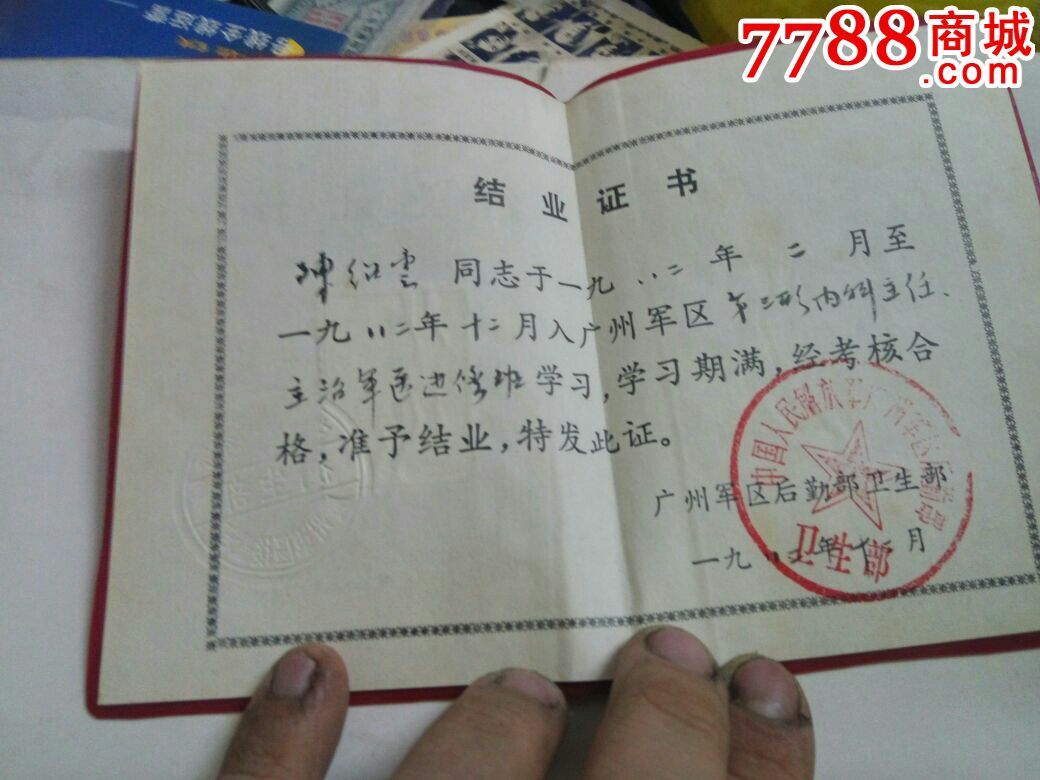 7788商城
.com
结业证书
陈绍云 同志于一九八二年 二 月至
一九八二年十二月入广州军区第二期内科主任、
主治军医进修班学习,学习期满,经考核合
格,准予结业,特发此证。
中国人民解放军广州军区后勤部
广州军区后勤部卫生部
一九八二年十二月
卫生部